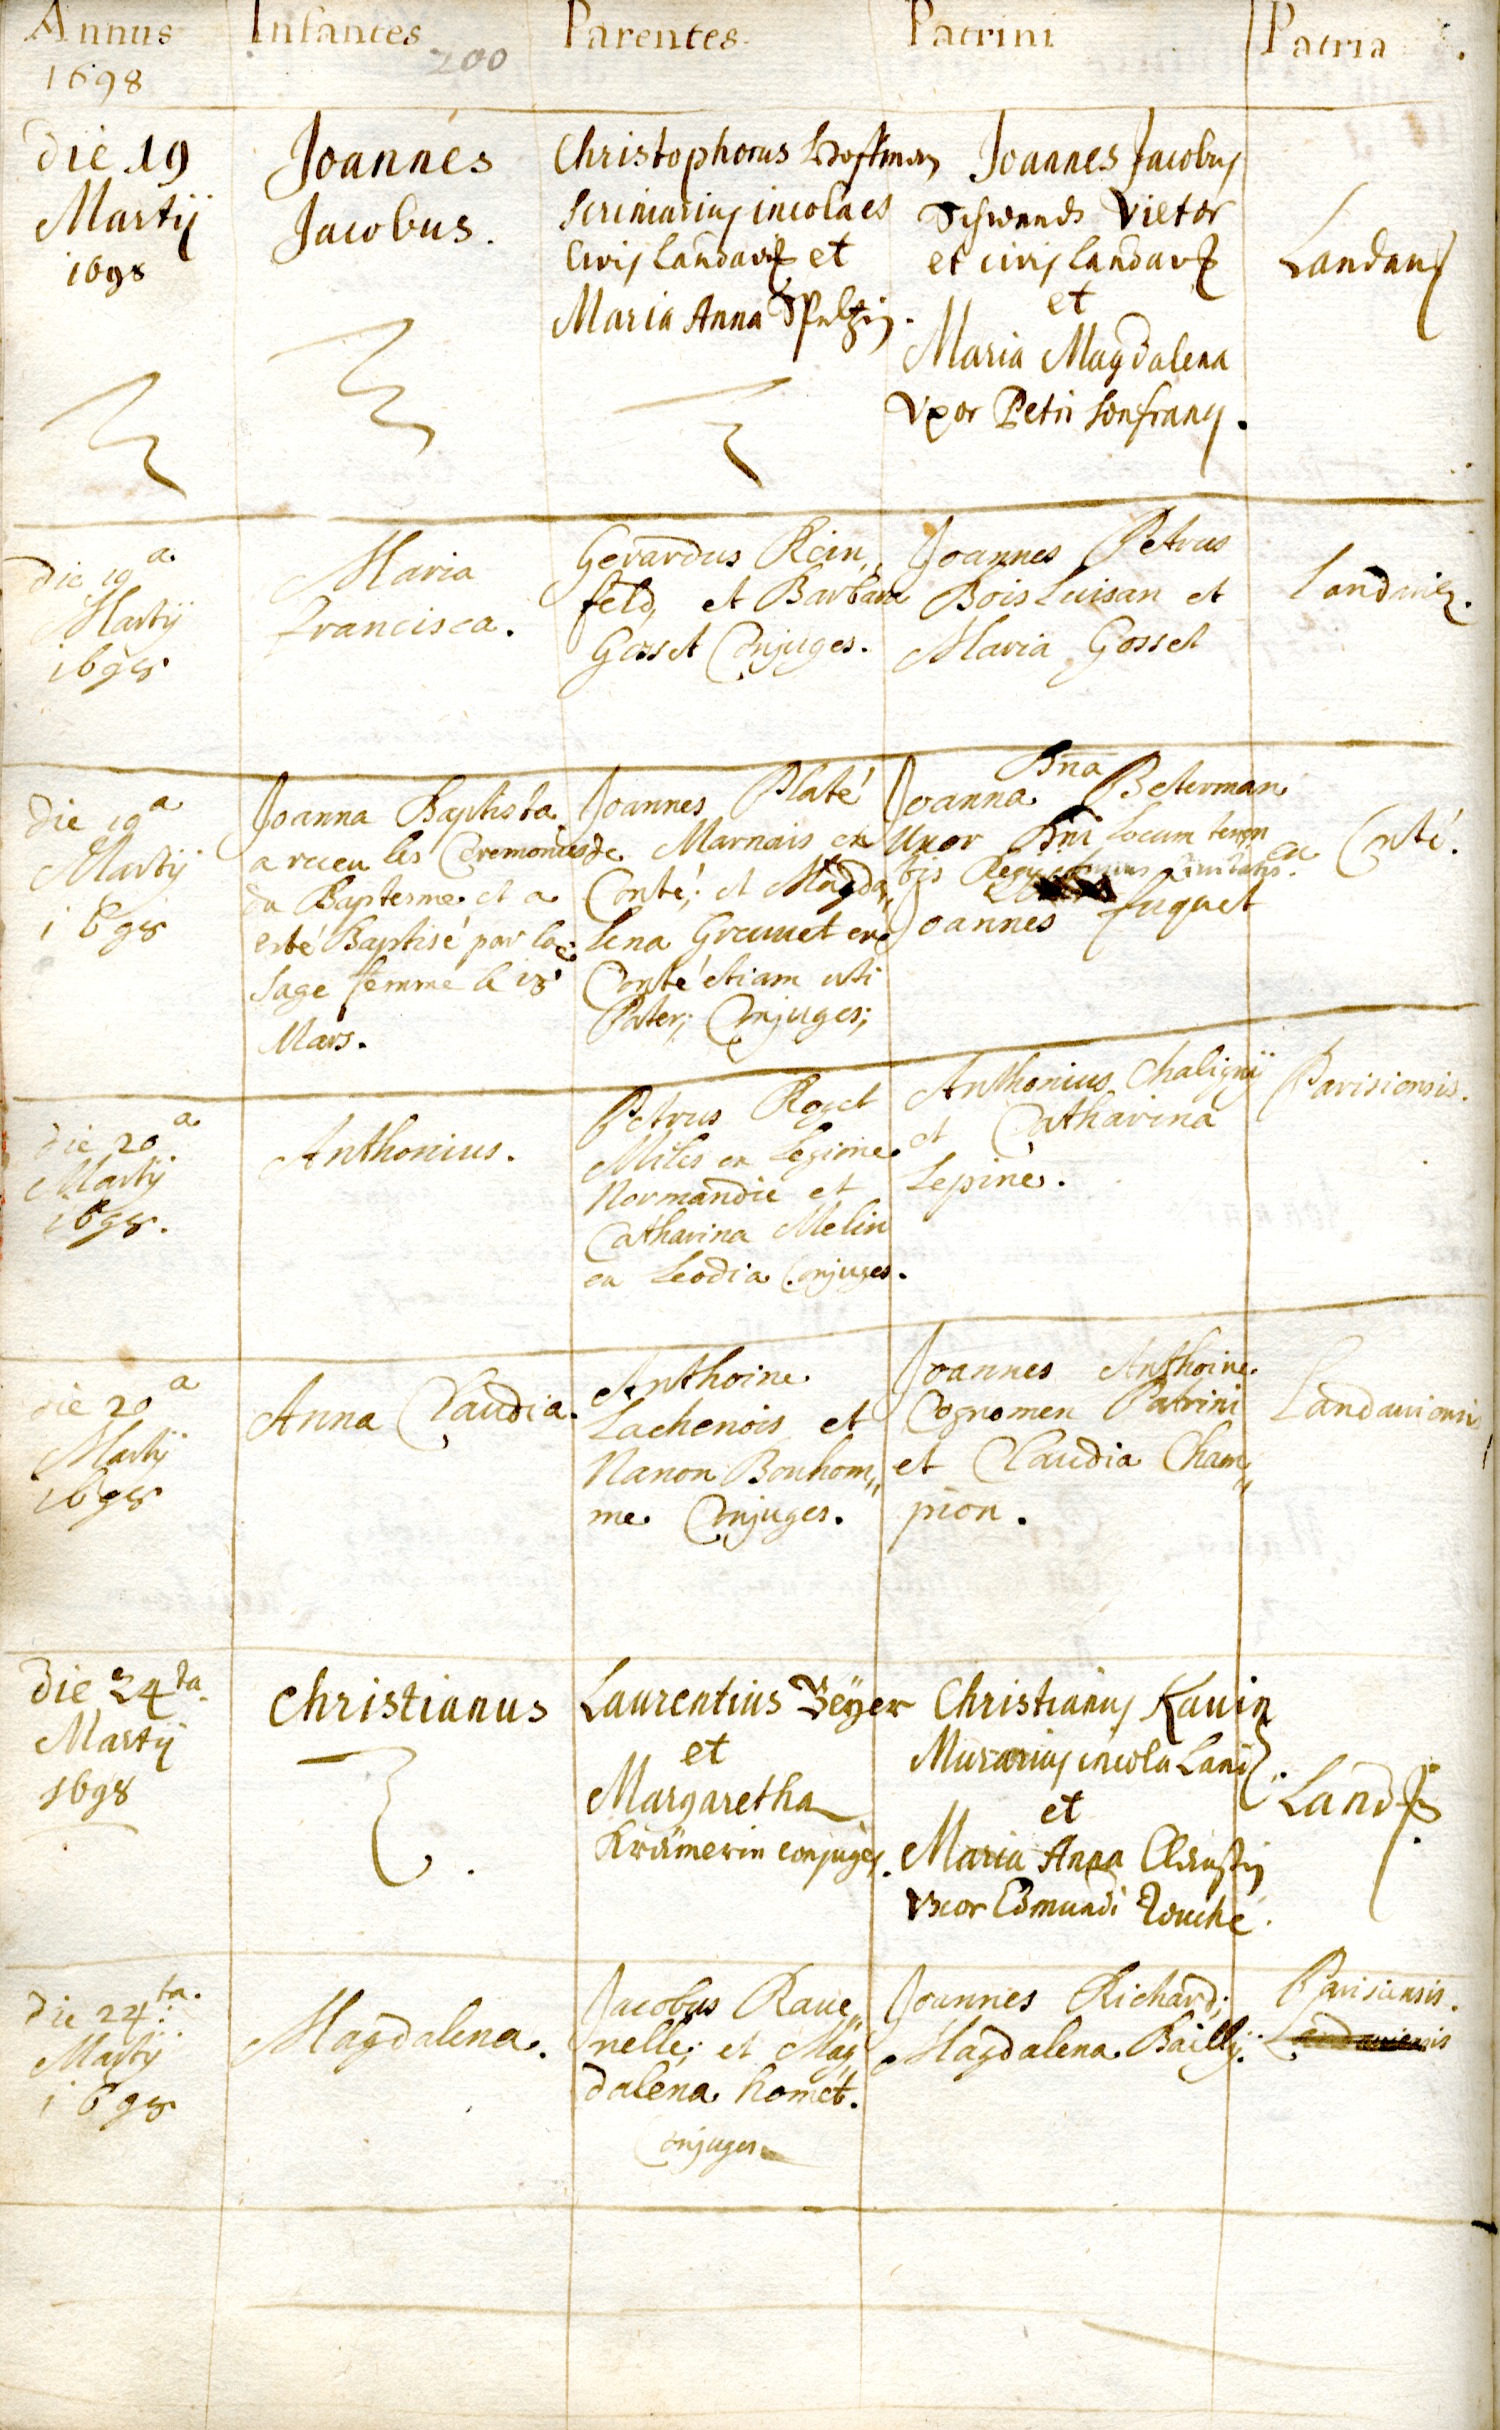 Annus Infantes Parentes Patrini Patria
1698
200
die 19
Martij
1698
Joannes
Jacobus.
Christophorus Hoffman
scriniarius incola es
Civis Landav et
Maria Anna
Joannes Jacobus
Vietor
et civis Landav
et
Maria Magdalena
Vxor Petri
Landav
die 19a.
Martij
1698
Maria
francisca.
Gerardus Rein„
feld, et Barbara
Gosset Conjuges.
Joannes Petrus
Bois Luisan et
Maria Gosset
Landavien.
die 19a
Martij
1698
Joanna Baptista
a receu les Ceremonies
du Baptesme et a
esté Baptisé par la
sage femme le 18e
Mars.
Joannes Platé
de Marnais en
Conté; et Magda„
lena Gremet en
Conté etiam uti
Pater; Conjuges;
Dna
Joanna Beterman
Uxor Dni Locum tenen
tis Regij Civitatis.
Joannes fuguet
en Conté.
die 20a
Martij
1698.
Anthonius.
Petrus Roget
Miles en Legione
Normandie et
Catharina Melin
en Leodia Conjuges.
Anthonius Chaligny
et Catharina
Lepine.
Parisiensis.
die 20a
Martij
1698
Anna Claudia.
Anthoine
Lachenois et
Nanon Bonhom„
me Conjuges.
Joannes Anthoine
Cognomen Patrini
et Claudia Cham„
pion.
Landaviensis
die 24ta.
Martij
1698
Christianus
Laurentius Beyer
et
Margaretha
Krämerin conjuges.
Christianus Kauin
Murarius incola Land.
et
Maria Anna
Vxor Edmundi Touché.
Land
die 24ta.
Martij
1698
Magdalena.
Jacobus Raue„
nelle; et Mag„
dalena homet.
Conjuges
Joannes Richard;
Magdalena Bailly.
Parisiensis.
Landaviensis